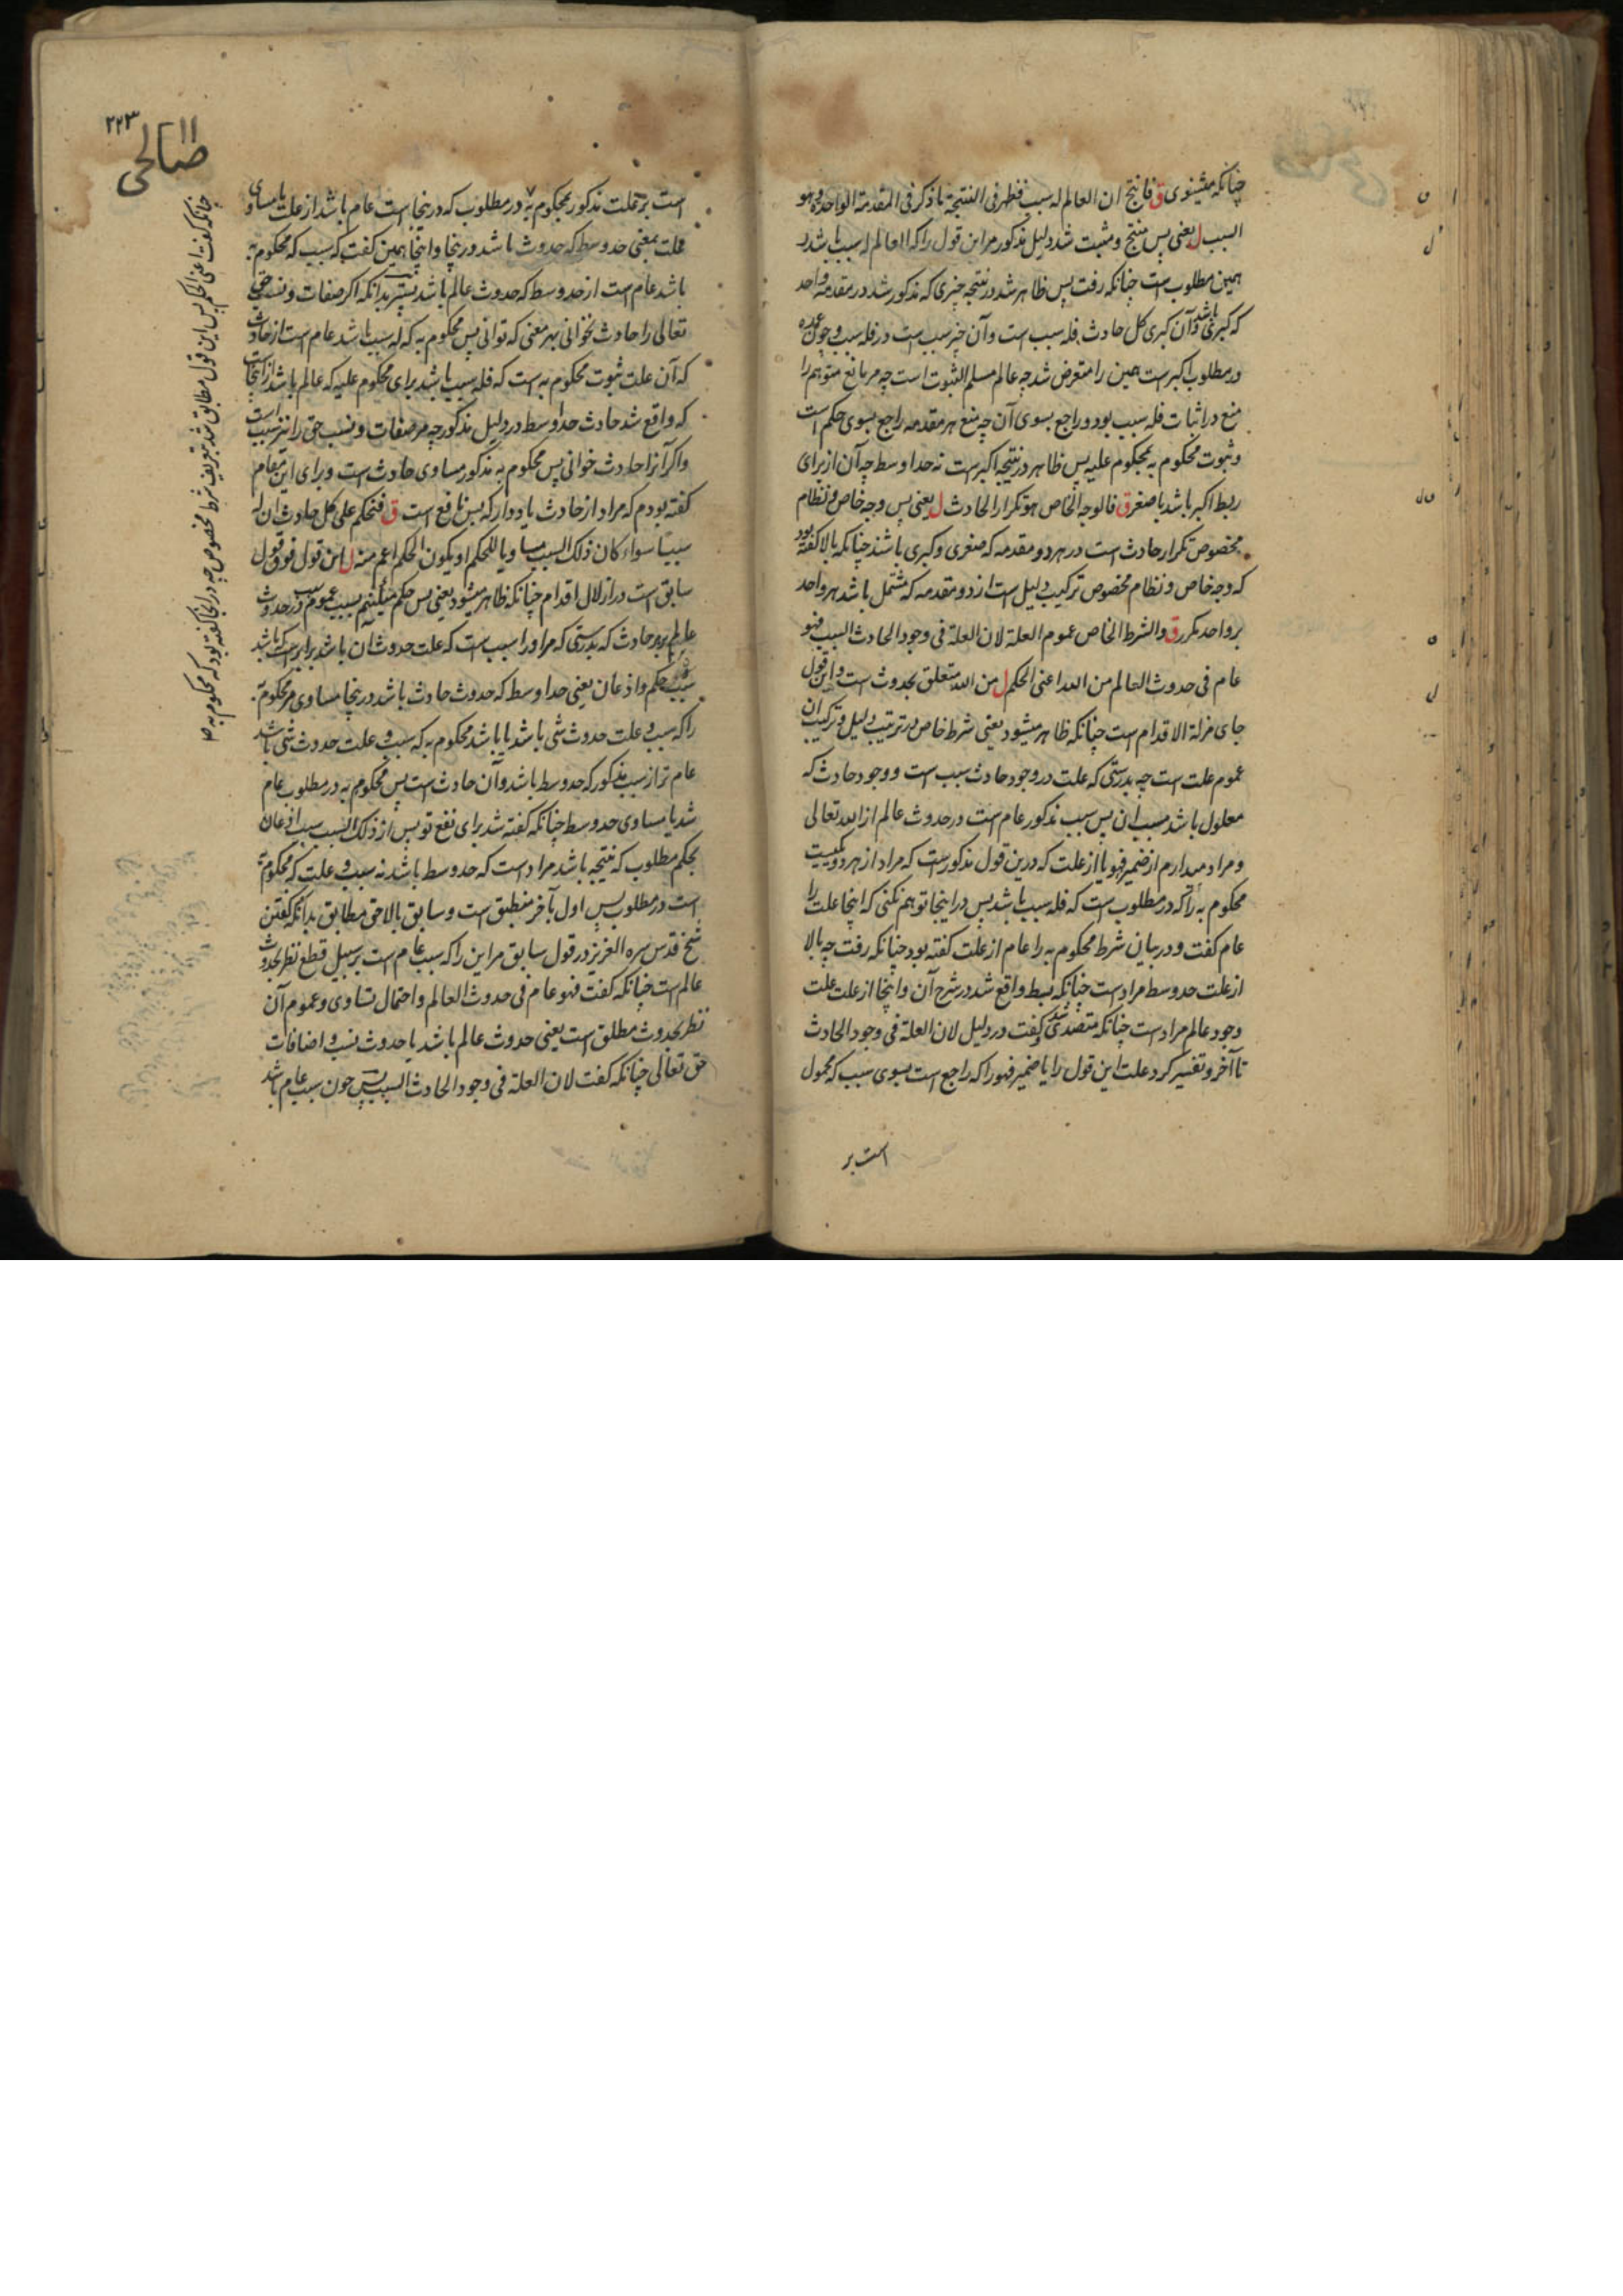 چنانکه میشنوی ق فانتج ان العالم له سبب فظهر فی النتیجة ما ذکر فی المقدمة الواحدة وهو
السبب ل یعنی پس منتج و مثبت شد دلیل مذکور مر این قول را که العالم له سبب باشد و
همین مطلوب است چنانکه رفت پس ظاهر شد در نتیجه چیزی که مذکور شد در مقدمه واحد
که کبری باشد و آن کبری کل حادث فله سبب است و آن چیز سبب است در فله سبب و چون عمده
در مطلوب اکبر است همین را متعرض شد چه عالم مسلم الثبوت است چه مر مانع متوهم را
منع در اثبات فله سبب بود و راجع بسوی آن چه منع هر مقدمه راجع بسوی حکم است
و ثبوت محکوم به بمحکوم علیه پس ظاهر در نتیجه اکبر است نه حد اوسط چه آن از برای
ربط اکبر باشد با صغر ق فالوجه الخاص هو تکرار الحادث ل یعنی پس وجه خاص و نظام
مخصوص تکرار حادث است در هر دو مقدمه که صغری و کبری باشند چنانکه بالا گفته بود
که وجه خاص و نظام مخصوص ترکیب دلیل است از دو مقدمه که مشتمل باشد هر واحد
بر واحد مکرر ق والشرط الخاص عموم العلة لان العلة فی وجود الحادث السبب فهو
عام فی حدوث العالم من الله اعنی الحکم ل من الله متعلق بحدوث است و این قول
جای مزلة الاقدام است چنانکه ظاهر میشود یعنی شرط خاص در ترتیب دلیل و ترکیب آن
عموم علت است چه بدرستی که علت در وجود حادث سبب است و وجود حادث که
معلول باشد مسبب آن پس سبب مذکور عام است در حدوث عالم از الله تعالی
و مراد میدارم از ضمیر فهو یا از علت که درین قول مذکور است که مراد از هر دو یکیست
محکوم به را که در مطلوب است که فله سبب باشد پس در اینجا توهم نکنی که اینجا علت را
عام گفت و در بیان شرط محکوم به را عام از علت گفته بود چنانکه رفت چه بالا
از علت حد وسط مراد است چنانکه بسط واقع شد در شرح آن و اینجا از علت علت
وجود عالم مراد است چنانکه متصدی شد گفت در دلیل لان العلة فی وجود الحادث
تا آخر و تفسیر کرد علت این قول را یا ضمیر فهو را که راجع است بسوی سبب که محمول
است بر
۲۲۳
صالحی
است بر علت مذکور بمحکوم به در مطلوب که درینجا است عام باشد از علت یا مساوی
علت بمعنی حد وسط که حدوث باشد درینجا و اینجا همین گفت که سبب که محکوم به
باشد عام است از حد وسط که حدوث عالم باشد بدانکه اگر صفات و نسب حق
تعالی را حادث نخوانی بهر معنی که توانی پس محکوم به که له سبب باشد عام است از حادث
که آن علت ثبوت محکوم به است که فله سبب باشد برای محکوم علیه که عالم باشد از اینجا
که واقع شد حادث حد اوسط در دلیل مذکور چه مر صفات و نسب حق را نیز سبب است
و اگر آنرا حادث خوانی پس محکوم به مذکور مساوی حادث است و برای این مقام
گفته بودم که مراد از حادث یاد دار که بس نافع است ق فنحکم علی کل حادث ان له
سببا سواء کان ذلک السبب مساویا للحکم او یکون الحکم اعم منه ل این قول فوق قول
سابق است در ازلال اقدام چنانکه ظاهر میشود یعنی پس حکم میکنیم بسبب عموم سبب در حدوث
عالم بر هر حادث که بدرستی که مر او را سبب است که علت حدوث آن باشد برابر است که باشد
سبب حکم و اذعان یعنی حد اوسط که حدوث حادث باشد درینجا مساوی مر محکوم به
را که سبب و علت حدوث شی باشد یا باشد محکوم به که سبب و علت حدوث شی باشد
عام تر از سبب مذکور که حد وسط باشد و آن حادث است پس محکوم به در مطلوب عام
شد یا مساوی حد وسط چنانکه گفته شد برای نفع تو پس از ذلک السبب سبب اذعان
بحکم مطلوب که نتیجه باشد مراد است که حد وسط باشد نه سبب و علت که محکوم به
است در مطلوب پس اول بآخر منطبق است و سابق بالاحق مطابق بدانکه گفتن
شیخ قدس سره العزیز در قول سابق مر این را که سبب عام است بر سبیل قطع نظر بحدوث
عالم است چنانکه گفت فهو عام فی حدوث العالم و احتمال تساوی و عموم آن
نظر بحدوث مطلق است یعنی حدوث عالم باشد یا حدوث نسب و اضافات
حق تعالی چنانکه گفت لان العلة فی وجود الحادث السبب پس چون سبب عام باشد
چنانکه گفت اعنی الحکم پس این قول مطابق شد بتعریف شرط مخصوص چه در آنجا گفته بود که محکوم به